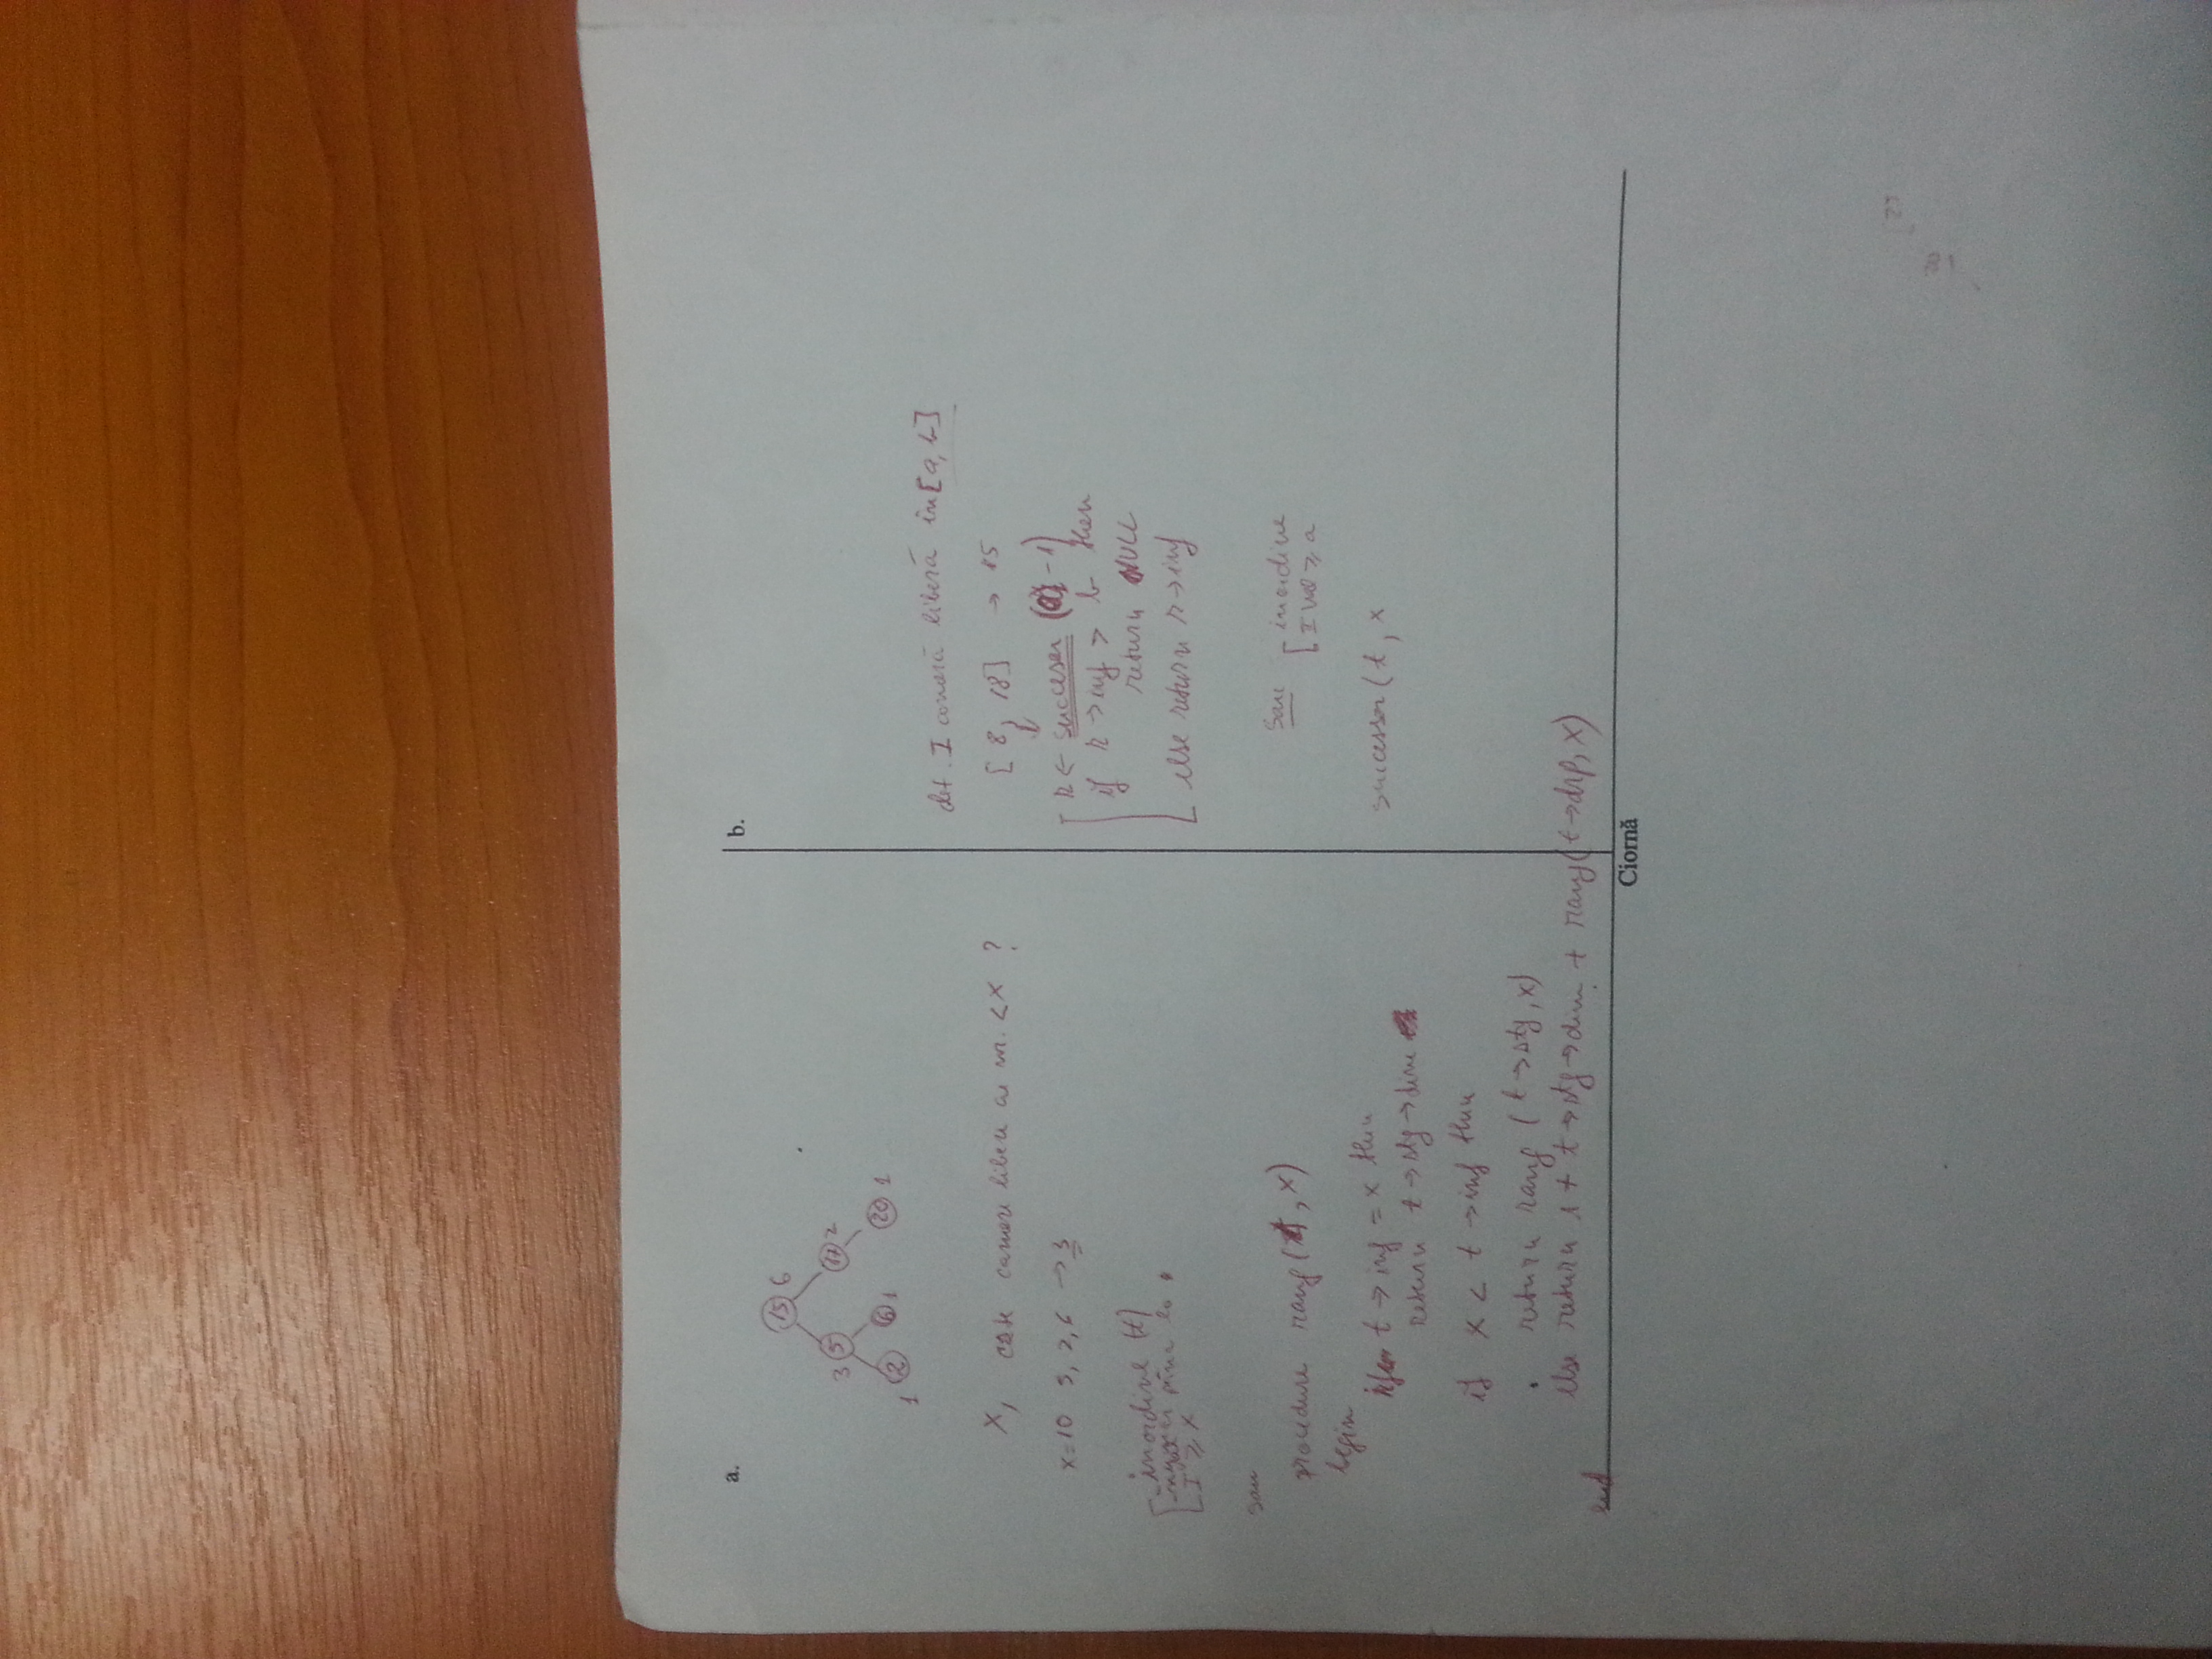 a.
15 6
3 5 17 2
1 2 6 1 20 1
x, câte camere libere au nr. < x ?
x=10 5, 2, 6 → 3
inordine (t)
până la
I ≥ x
sau
procedure rang(t, x)
begin
if t → inf = x then
return t → stg → dim
if x < t → inf then
return rang (t → stg, x)
else return 1 + t → stg → dim + rang(t → drp, x)
end
b.
det. I cameră liberă în [a, b]
[8, 18] → 15
r ← succesor (a - 1)
if r → inf > b then
return NULL
else return r → inf
sau inordine
I val ≥ a
successor (t, x
Ciornă